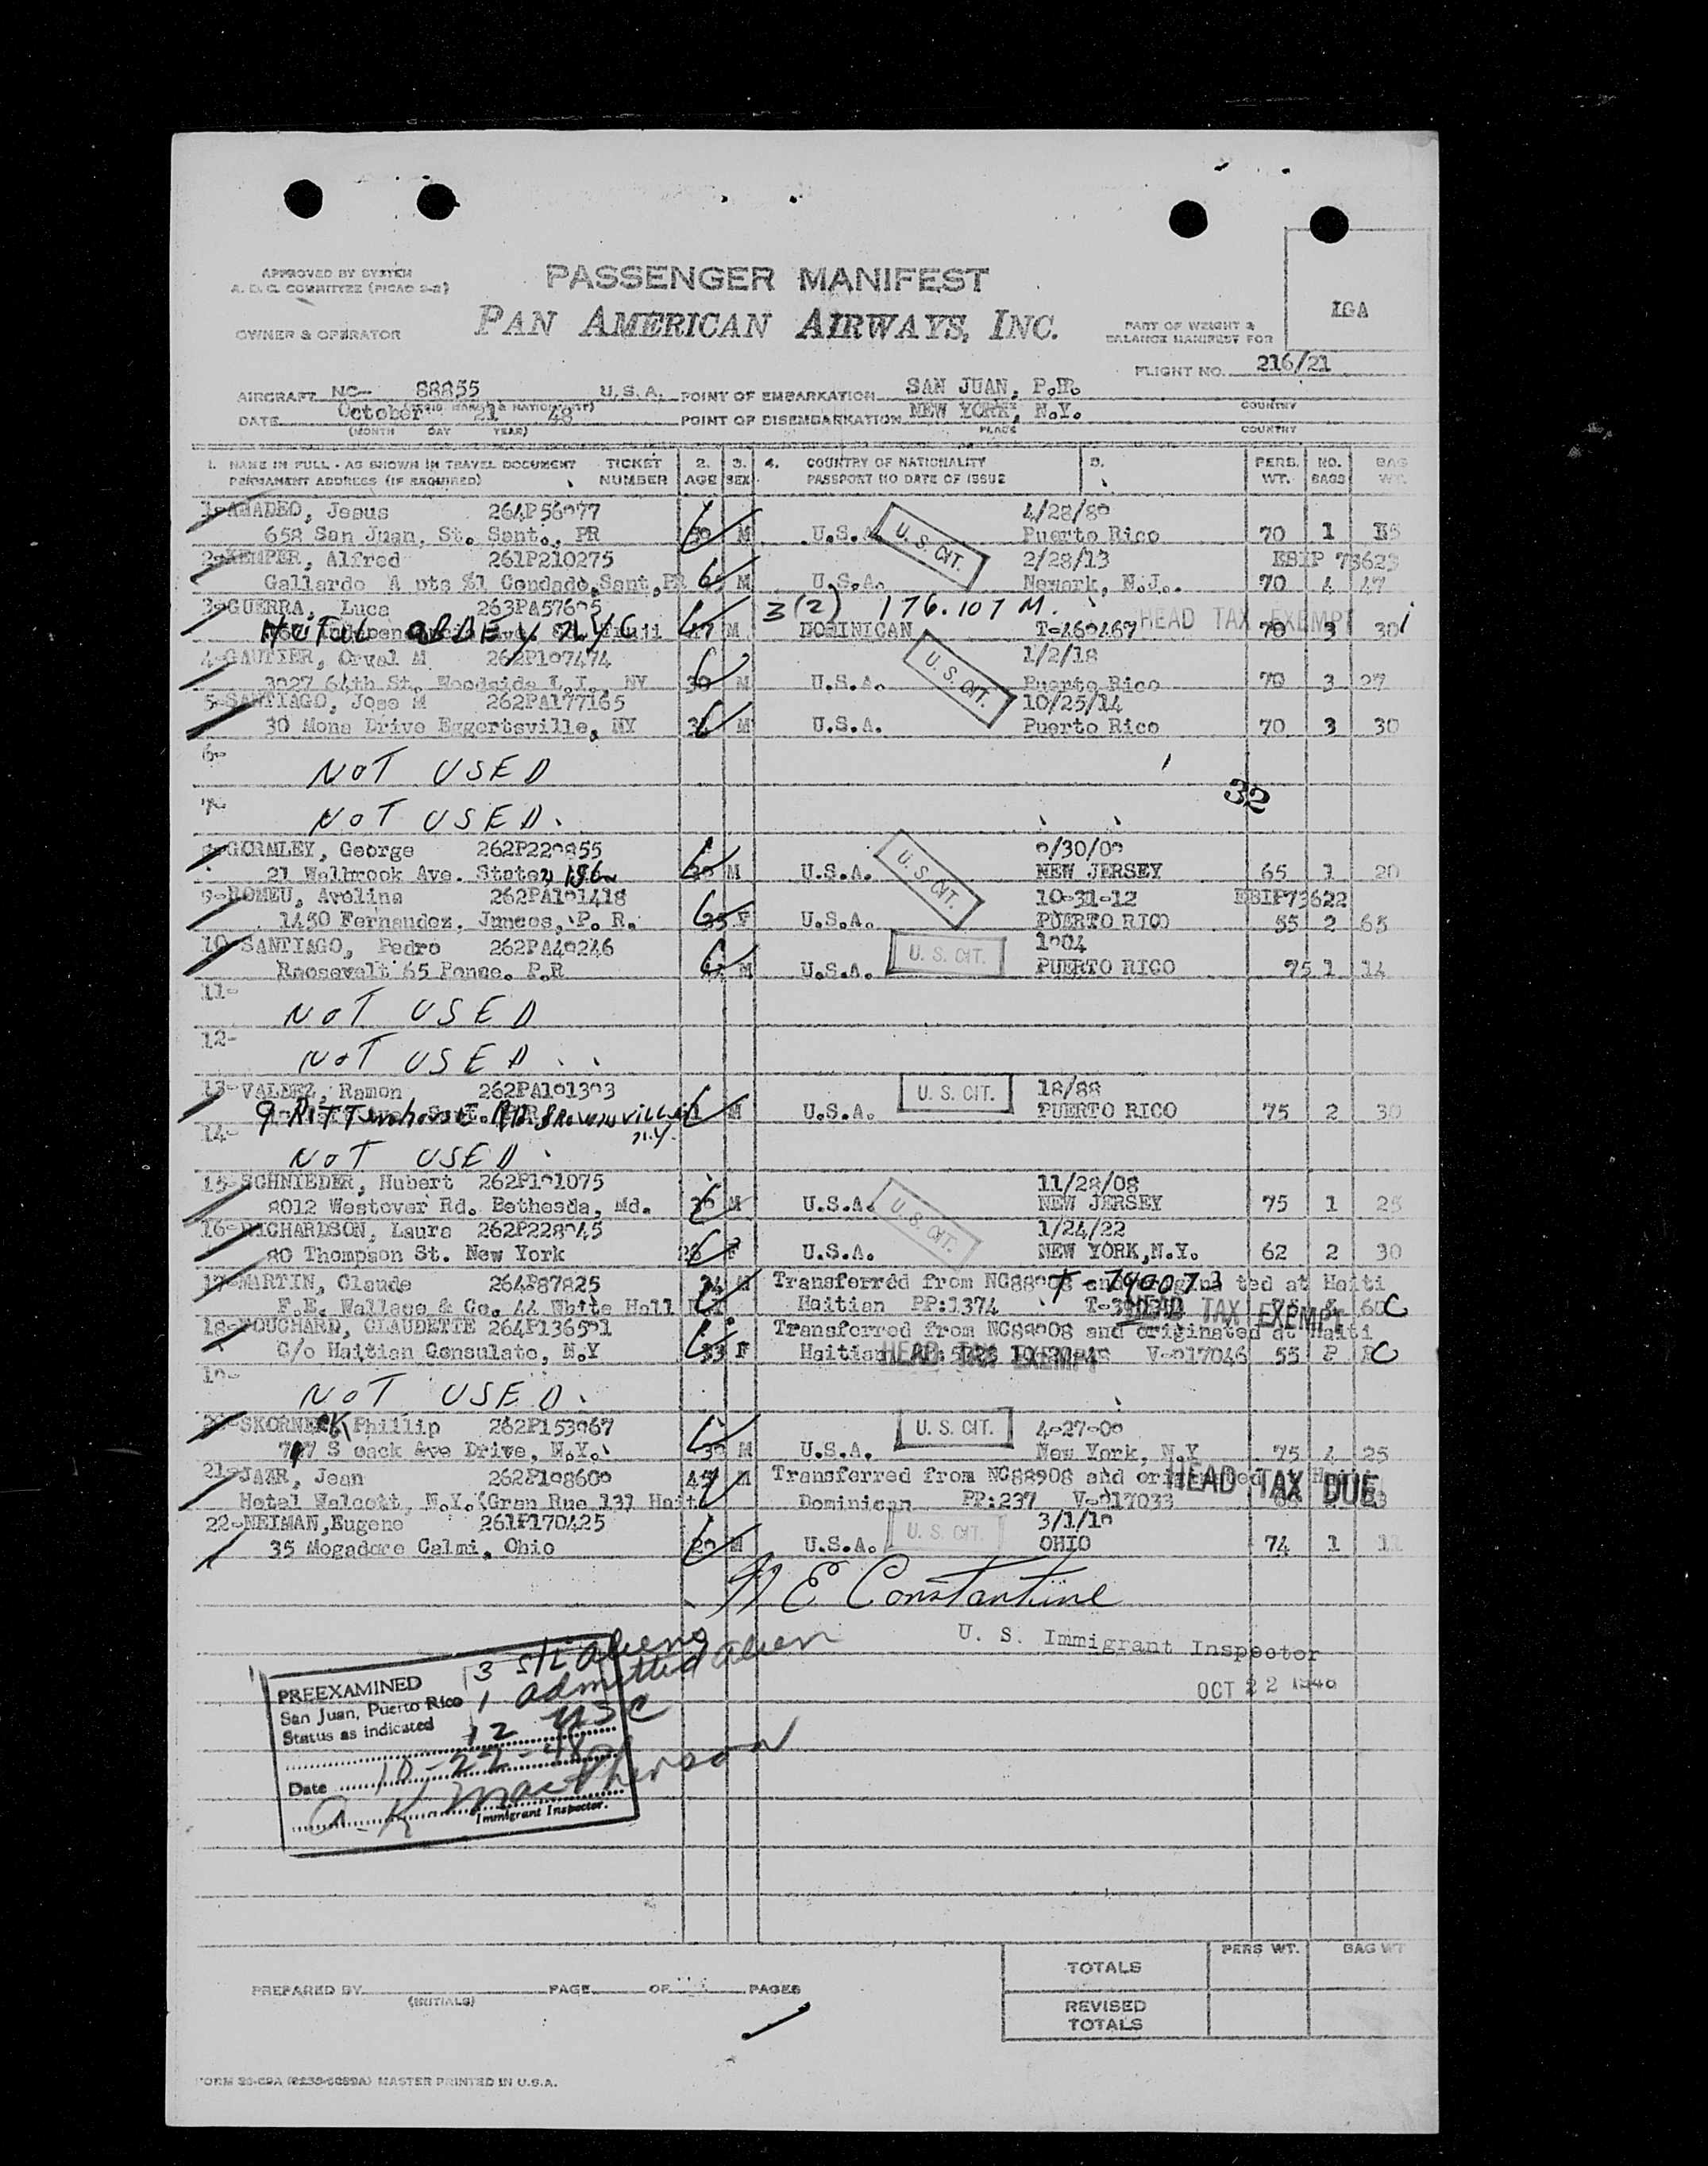 APPROVED BY SYSTEM
A. D. C. COMMITTEE (PICAO 2-2)
PASSENGER MANIFEST
OWNER & OPERATOR
PAN AMERICAN AIRWAYS, INC.
PART OF WEIGHT &
BALANCE MANIFEST FOR
LGA
FLIGHT NO. 216/21
AIRCRAFT NC- 88855 U.S.A. POINT OF EMBARKATION SAN JUAN, P.R. COUNTRY
DATE October 21 48 POINT OF DISEMBARKATION NEW YORK, N.Y.
(MONTH DAY YEAR) PLACE COUNTRY
1. NAME IN FULL - AS SHOWN IN TRAVEL DOCUMENT TICKET 2. 3. 4. COUNTRY OF NATIONALITY 5. PERS. NO. BAG
PERMANENT ADDRESS (IF REQUIRED) NUMBER AGE SEX PASSPORT NO DATE OF ISSUE WT. BAGS WT.
1-AMADEO, Jesus 264P56977 4/28/89
658 San Juan, St. Sant., PR M U.S.A. U. S. CIT. Puerto Rico 70 1
2-KEMPER, Alfred 261P210275 2/28/13 EBIP 73623
Gallardo A pts Condado, Sant, PR M U.S.A. Newark, N.J. 70 4 47
3-GUERRA, Luca 263PA57695 3(2) 176.107 M. HEAD TAX EXEMPT
NYC M DOMINICAN T-469467 70 3 30
4-GAUTIER, Orval M 262P197474 1/2/18
3927 64th St. Woodside L.I., NY 30 M U.S.A. U. S. CIT. Puerto Rico 70 3 27
5-SANTIAGO, Jose M 262PA177165 10/25/14
30 Mona Drive Eggertsville, NY M U.S.A. Puerto Rico 70 3 30
6-
NOT USED
7- 32
NOT USED.
8-GORMLEY, George 262P229855 9/30/09
21 Walbrook Ave. Staten Isl. M U.S.A. U. S. CIT. NEW JERSEY 65 1 20
9-ROMEU, Avelina 262PA191418 10-31-12 EBIP73622
1450 Fernandez, Juncos, P. R. 35 F U.S.A. PUERTO RICO 55 2 65
10-SANTIAGO, Pedro 262PA49246 1904
Roosevelt 65 Ponce. P.R M U.S.A. U. S. CIT. PUERTO RICO 75 1 14
11-
NOT USED
12-
NOT USED
13-VALDEZ, Ramon 262PA191393 U. S. CIT. 18/88
9 RITTenhouse RD. M U.S.A. PUERTO RICO 75 2 30
14- N.Y.
NOT USED.
15-SCHNIEDER, Hubert 262P191075 11/28/08
8012 Westover Rd. Bethesda, Md. M U.S.A. U. S. CIT. NEW JERSEY 75 1 25
16-RICHARDSON, Laura 262P228945 1/24/22
80 Thompson St. New York 26 F U.S.A. NEW YORK, N.Y. 62 2 30
17-MARTIN, Claude 264P87825 M Transferred from NC88908 and originated at Haiti
T-790073
F.E. Wallace & Co. 44 White Hall Haitian PP:1374 HEAD TAX EXEMPT 60 C
18-BOUCHARD, CLAUDETTE 264P136591 Transferred from NC88908 and originated at Haiti
C/o Haitian Consulate, N.Y 33 F Haitian HEAD TAX EXEMPT V-917046 55 C
19-
NOT USED.
20-SKORNEK Phillip 262P153967 U. S. CIT. 4-27-09
Ave Drive, N.Y. 39 M U.S.A. New York, N.Y 75 4 25
21-JAAR, Jean 262P198609 45 M Transferred from NC88908 and HEAD TAX DUE
Hotel Walcott, N.Y. (Gran Rue 137 Haiti Dominican PP:237 V-917033
22-NEIMAN, Eugene 261P170425 3/1/19
35 Mogadore Calmi, Ohio 29 M U.S.A. U. S. CIT. OHIO 74 1 11
E Constantine
U. S. Immigrant Inspector
OCT 22 1948
PREEXAMINED
San Juan, Puerto Rico
Status as indicated
3 aliens
1 admitted alien
12 USC
Date 10-22-48
A. K. MacPherson
Immigrant Inspector.
PERS WT. BAG WT
TOTALS
PREPARED BY PAGE OF PAGES
(INITIALS)
REVISED
TOTALS
MASTER PRINTED IN U.S.A.